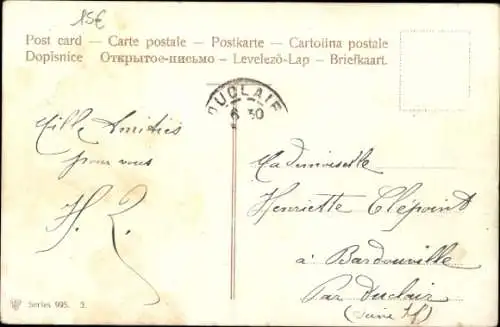 15€
Post card – Carte postale – Postkarte – Cartolina postale
Dopisnice Открытое-письмо – Levelező-Lap – Briefkaart.
DUCLAIR
6 30
Mille Amitiés
pour vous
H. L.
Mademoiselle
Henriette Clépoint
à Bardouville
Par Duclair
(Seine If)
Series 995. 3.